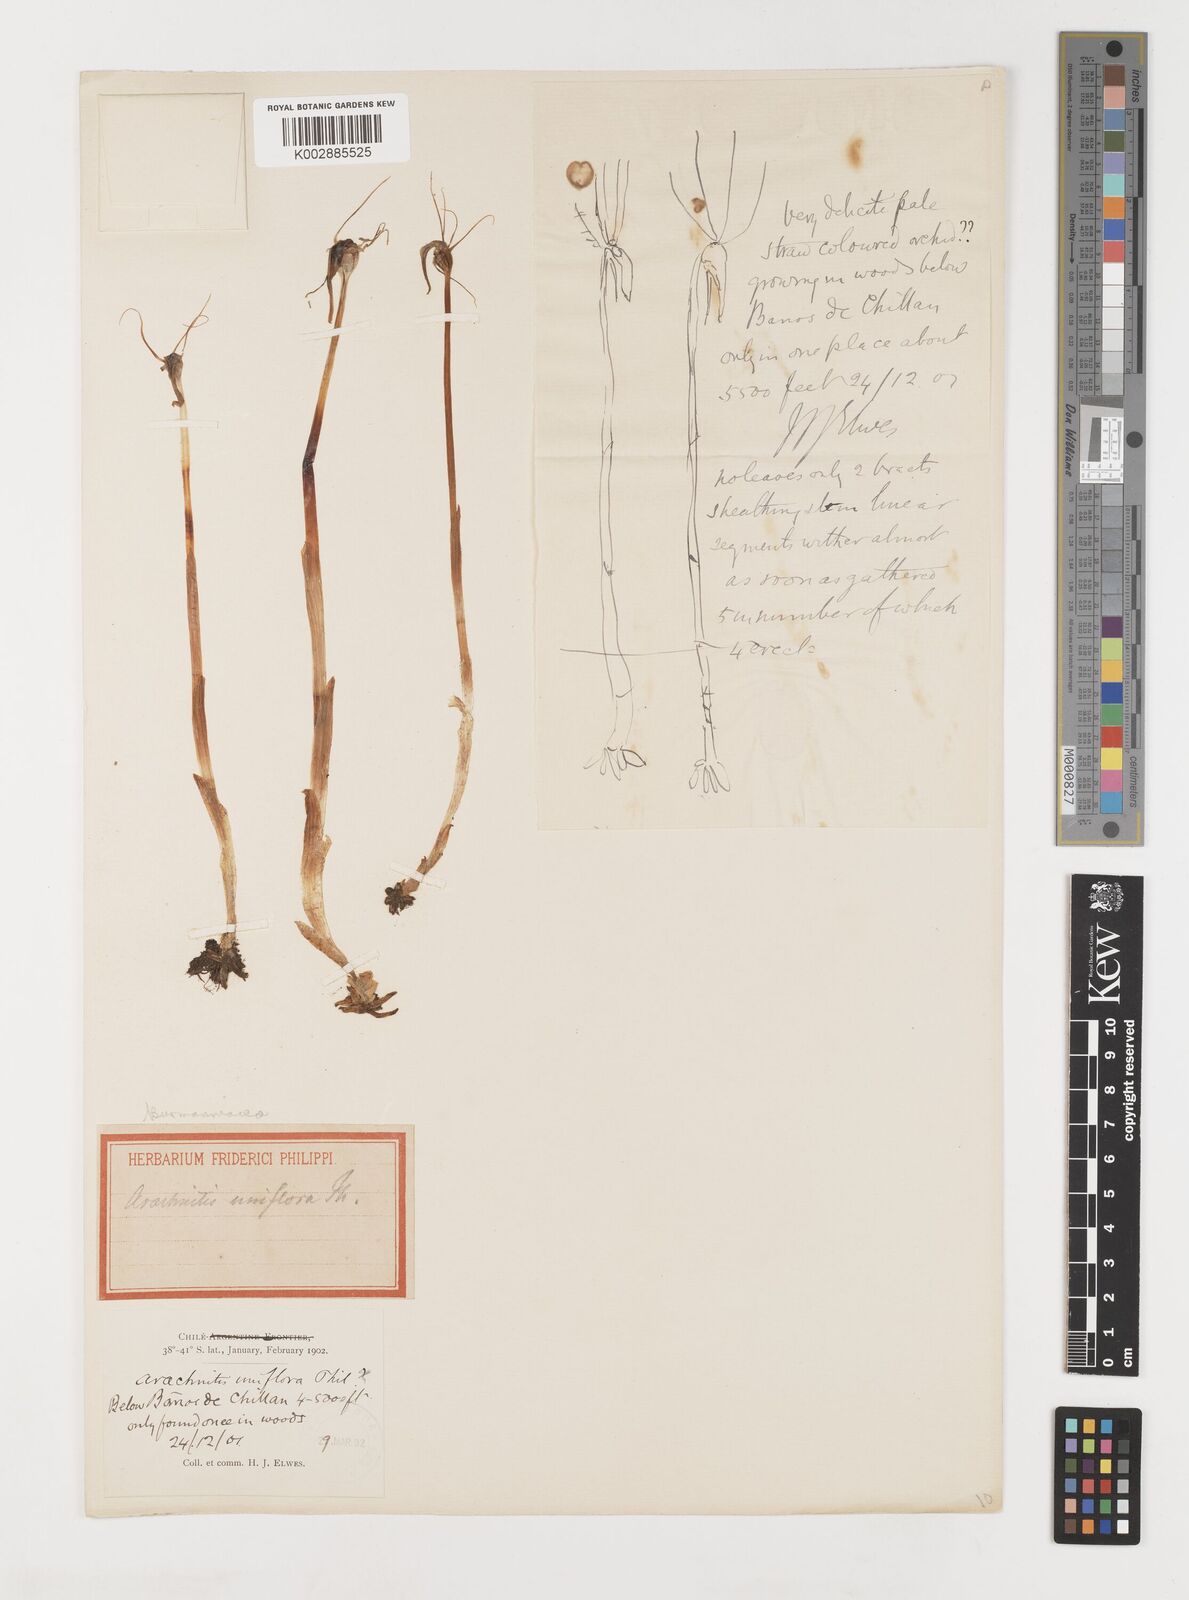 ROYAL BOTANIC GARDENS KEW
K002885525
Very delicate pale
straw coloured orchid??
growing in woods below
Banos de Chillan
only in one place about
5500 feet 24/12 01
HJ Elwes
no leaves only 2 bracts
sheathing stem linear
segments wither almost
as soon as gathered
5 in number of which
4 erect
Burmanniacea
HERBARIUM FRIDERICI PHILIPPI.
Arachnitis uniflora Ph.
CHILÉ-ARGENTINE FRONTIER,
38°-41° S. lat., January, February 1902.
Arachnitis uniflora Phil.?
Below Bãnos de Chillan 4-5000 ft.
only found once in woods
24/12/01 9
Coll. et comm. H. J. ELWES.
10
inches
centimeters
Don Williams
M000827
Kew
Royal Botanic Gardens
copyright reserved
0 1 2 3 4 5 6 7 8 9 10
cm